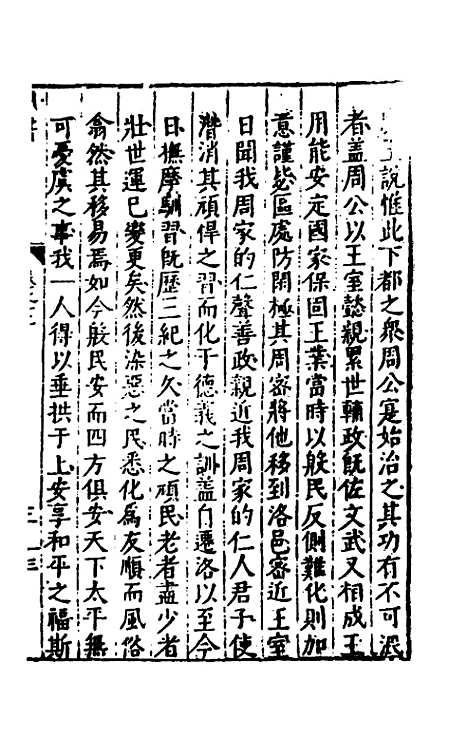 說惟此下都之衆周公寔始治之其功有不可泯
者盖周公以王室懿親累世輔政旣佐文武又相成王
用能安定國家保固王業當時以殷民反側難化則加
意謹毖區處防閑極其周密將他移到洛邑密近王室
日聞我周家的仁聲善政親近我周家的仁人君子使
潛消其頑悍之習而化于德義之訓盖自遷洛以至今
日撫摩馴習旣歷三紀之久當時之頑民老者盡少者
壯世運已變更矣然後染惡之民悉化爲友順而風俗
翕然其移易焉如今殷民安而四方俱安天下太平無
可憂虞之事我一人得以垂拱于上安享和平之福斯